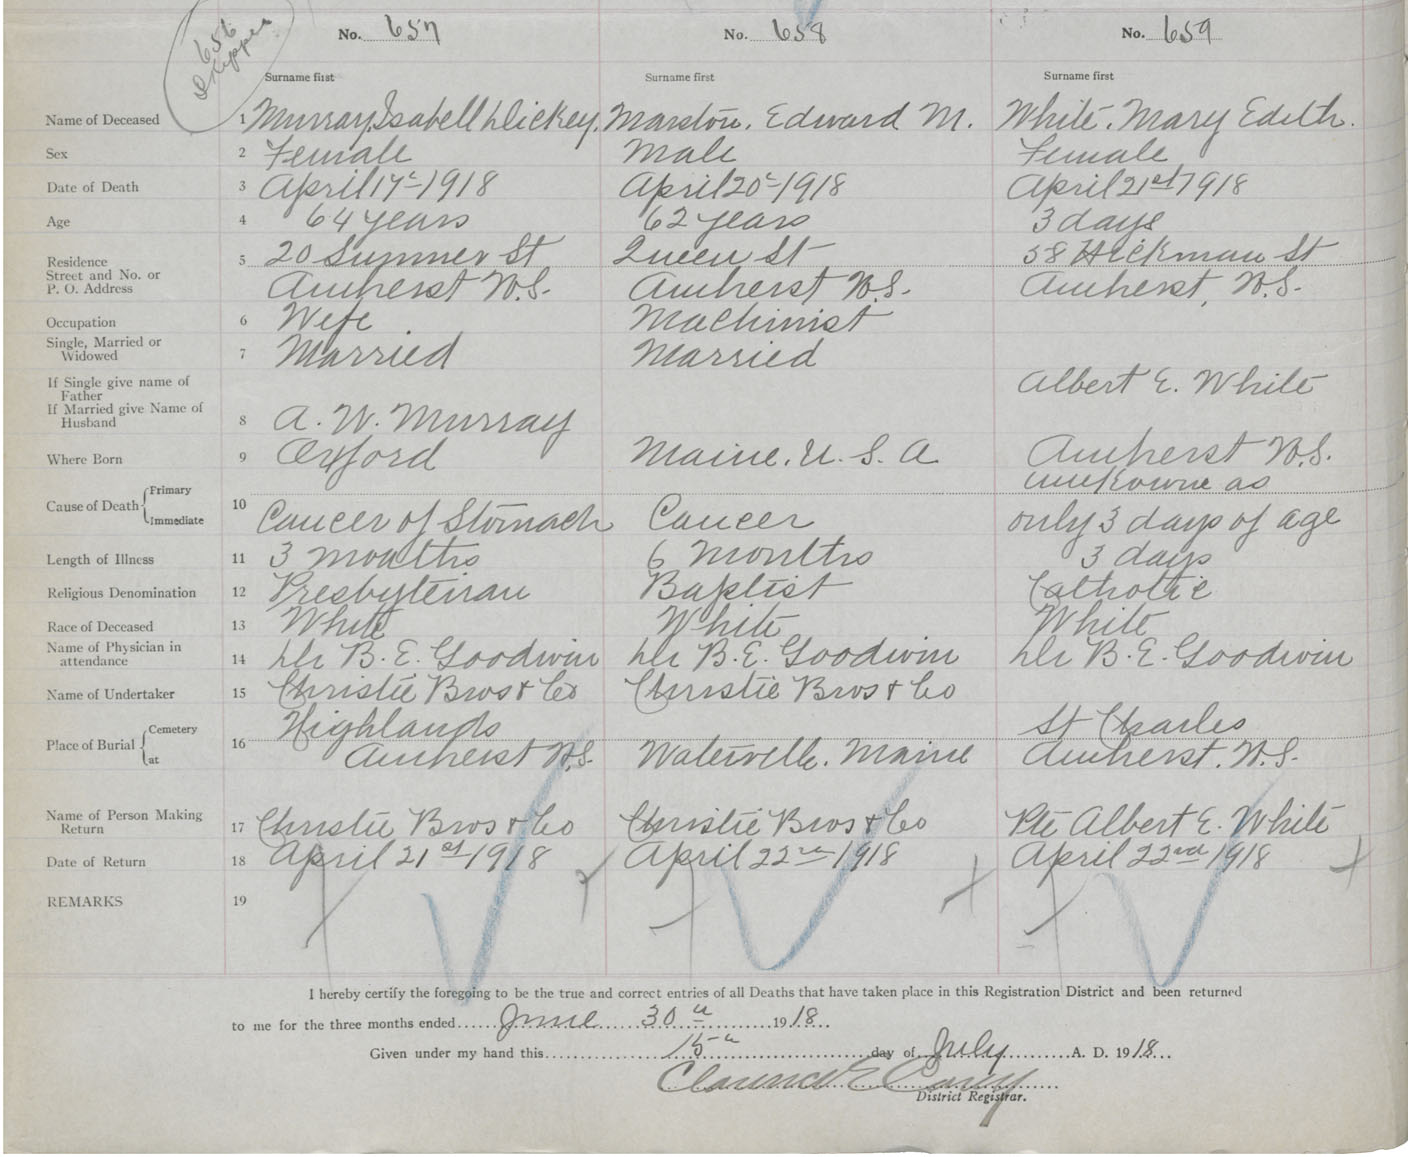 656
Skipped
No. 657 No. 658 No. 659
Surname first Surname first Surname first
Name of Deceased 1 Murray, Isabell Dickey, Marston, Edward M. White, Mary Edith.
Sex 2 Female Male Female
Date of Death 3 April 17th 1918 April 20th 1918 April 21st 1918
Age 4 64 years 62 years 3 days
Residence 5 20 Sumner St Queen St 58 Hickman St
Street and No. or
P. O. Address Amherst N.S. Amherst N.S. Amherst, N.S.
Occupation 6 Wife Machinist
Single, Married or
Widowed 7 Married Married
If Single give name of
Father Albert E. White
If Married give Name of
Husband 8 A. W. Murray
Where Born 9 Oxford Maine. U. S. A Amherst N.S.
Cause of Death Primary unkowne as
Immediate 10 Cancer of Stomach Cancer only 3 days of age
Length of Illness 11 3 months 6 months 3 days
Religious Denomination 12 Presbyterian Baptist Catholic
Race of Deceased 13 White White White
Name of Physician in
attendance 14 Dr B. E. Goodwin Dr B. E. Goodwin Dr B. E. Goodwin
Name of Undertaker 15 Christie Bros & Co Christie Bros & Co
Place of Burial Cemetery 16 Highlands St Charles
at Amherst N.S. Waterville, Maine Amherst, N.S.
Name of Person Making
Return 17 Christie Bros & Co Christie Bros & Co Pte Albert E. White
Date of Return 18 April 21st 1918 April 22nd 1918 April 22nd 1918
REMARKS 19
I hereby certify the foregoing to be the true and correct entries of all Deaths that have taken place in this Registration District and been returned
to me for the three months ended June 30th 1918
Given under my hand this 15th day of July A. D. 1918
Clarence E
District Registrar.